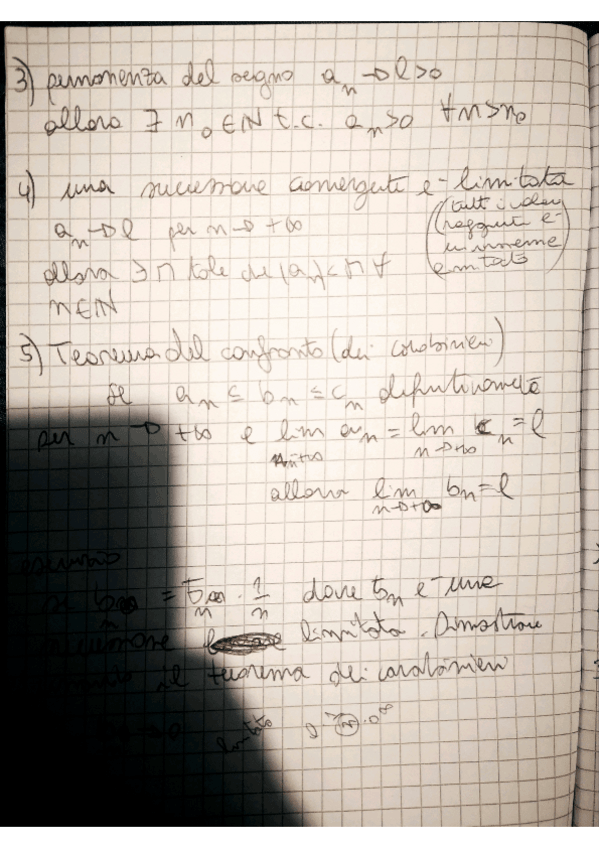 3) permanenza del segno a_n → l>0
allora ∃ n_0 ∈ ℕ t.c. a_n>0 ∀n>n_0
4) una successione convergente e- limitata
a_n → l per n → +∞ (tutti i valori
raggiunti e-
allora ∃ M tale che |a_n|< M ∀ un insieme
limitato)
n∈ℕ
5) Teorema del confronto (dei carabinieri)
se a_n ≤ b_n ≤ c_n definitivamente
per n → +∞ e lim a_n = lim c_n = l
n→+∞ n→+∞
allora lim b_n = l
n→+∞
se b_n = b_n · 1/n dove b_n e- una
successione limitata. Dimostrare
il teorema dei carabinieri
→0 limitato